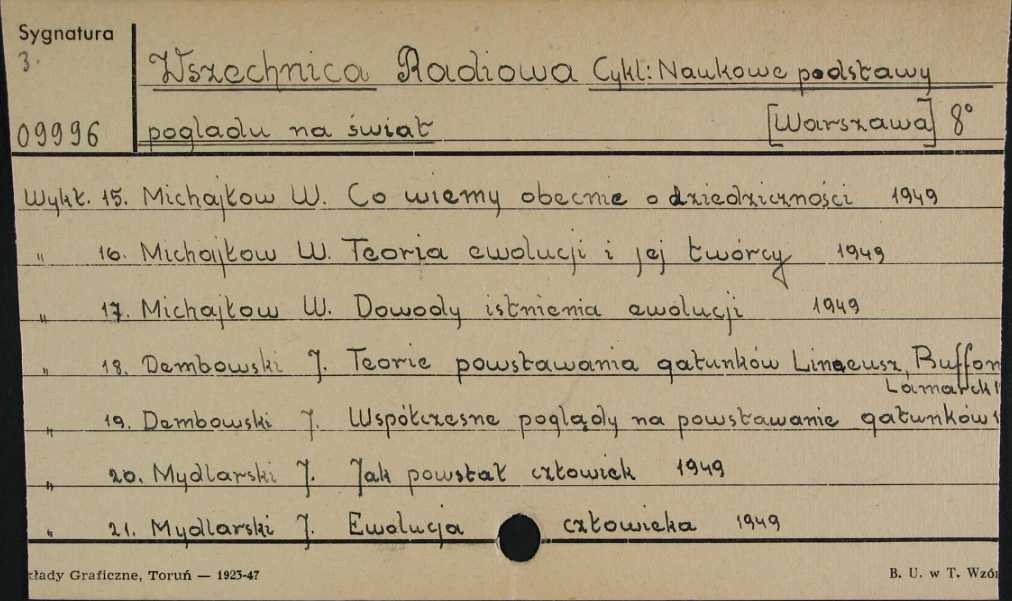 Sygnatura
3.
09996
Wszechnica Radiowa Cykl: Naukowe podstawy
poglądu na świat [Warszawa] 8°
Wykł. 15. Michajłow W. Co wiemy obecnie o dziedziczności 1949
" 16. Michajłow W. Teoria ewolucji i jej twórcy 1949
" 17. Michajłow W. Dowody istnienia ewolucji 1949
" 18. Dembowski J. Teorie powstawania gatunków Lineusz, Buffon
Lamarck 1
" 19. Dembowski J. Współczesne poglądy na powstawanie gatunków 1
" 20. Mydlarski J. Jak powstał człowiek 1949
" 21. Mydlarski J. Ewolucja człowieka 1949
kłady Graficzne, Toruń — 1925-47
B. U. w T. Wzór